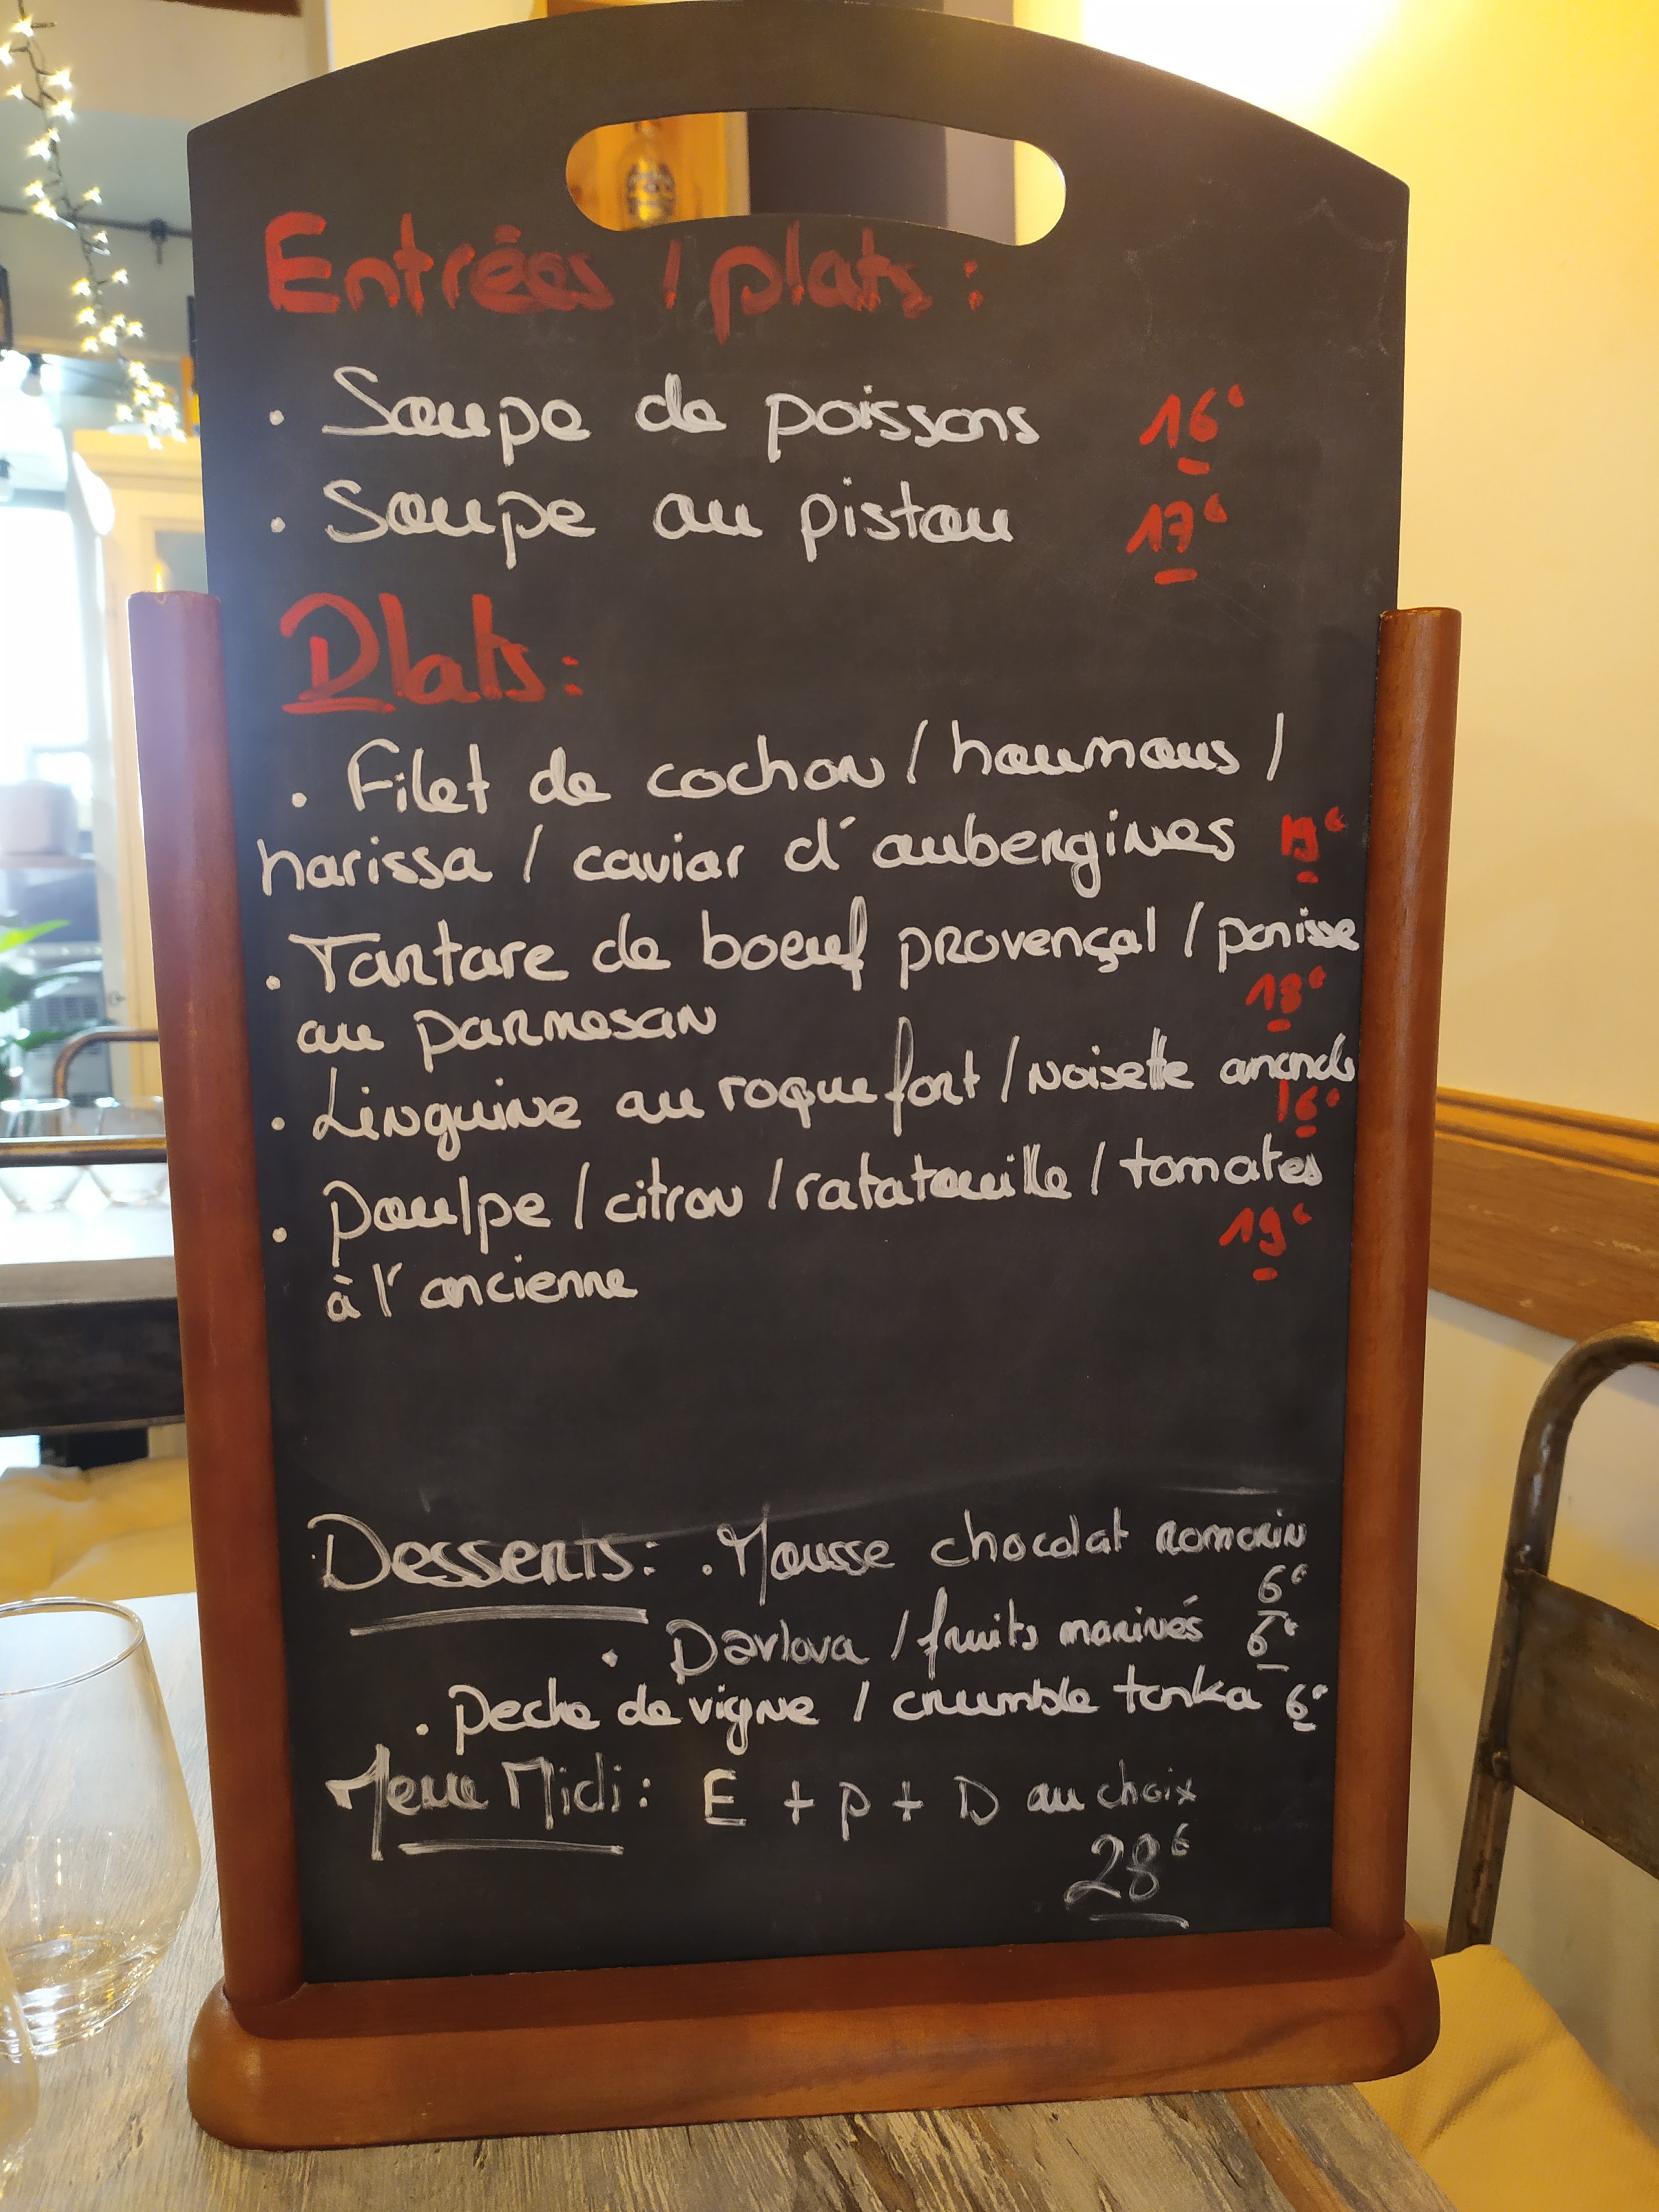 Entrées / plats :
• Soupe de poissons 16€
• Soupe au pistou 17€
Plats :
• Filet de cochon / houmous /
harissa / caviar d'aubergines 19€
• Tartare de boeuf provençal / panisse
au parmesan 18€
• Linguine au roquefort / noisette amande
16€
• Poulpe / citron / ratatouille / tomates
à l'ancienne 19€
Desserts : • Mousse chocolat romarin
6€
• Pavlova / fruits marinés 6€
• Peche de vigne / crumble tonka 6€
Menu Midi : E + P + D au choix
28€